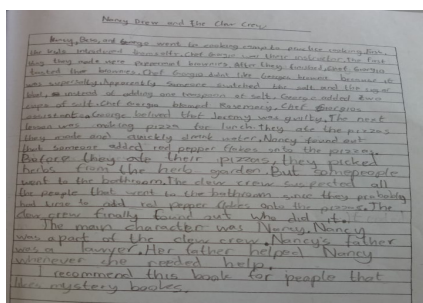 Nancy Drew and The Clew Crew
Nancy, Bess, and George went to cooking camp to practice cooking.
the introduced. Chef was their instructor. The first
thing they made were peppermint brownies. After they finished, Chef Georgia
tasted the brownies. Chef Georgia didn't like brownie because it
was Apparently someone switched the salt and the sugar
instead of adding one teaspoon of salt, George added two
cups of salt. Chef Georgia blamed Rosemary, Chef Georgia's
assistant. George believed that was guilty. The next
lesson was making pizza for lunch. they ate the pizzas
they made and quickly drank water. Nancy found out
that someone added red pepper flakes onto the pizzas.
Before they ate their pizzas, they picked
herbs from the herb garden. But some people
went to the bathroom. The clew crew suspected all
the people that went to the bathroom since they probably
had time to add red pepper flakes onto the pizzas. The
clew crew finally found out who did it.
The main character was Nancy. Nancy
was a part of the clew crew. Nancy's father
was a lawyer. Her father helped Nancy
whenever she needed help.
I recommend this book for people that
like mystery books.